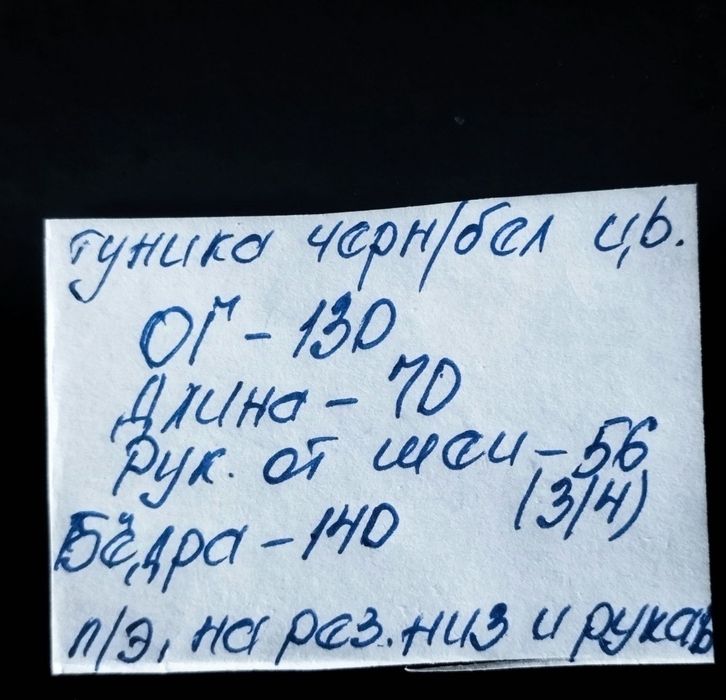 туника черн/бел цв.
ОГ - 130
Длина - 70
Рук. от шеи - 56
(3/4)
Бёдра - 140
п/э, на рез. низ и рукав